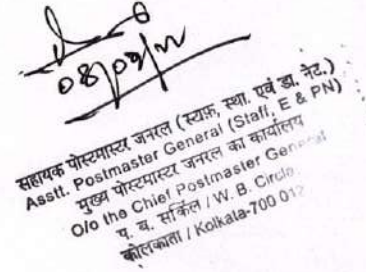 08/02/22
सहायक पोस्टमास्टर जनरल (स्टाफ़, स्था. एवं डा. नेट.)
Asstt. Postmaster General (Staff, E & PN)
मुख्य पोस्टमास्टर जनरल का कार्यालय
O/o the Chief Postmaster General
प. बं. सर्किल / W. B. Circle
कोलकाता / Kolkata-700 012